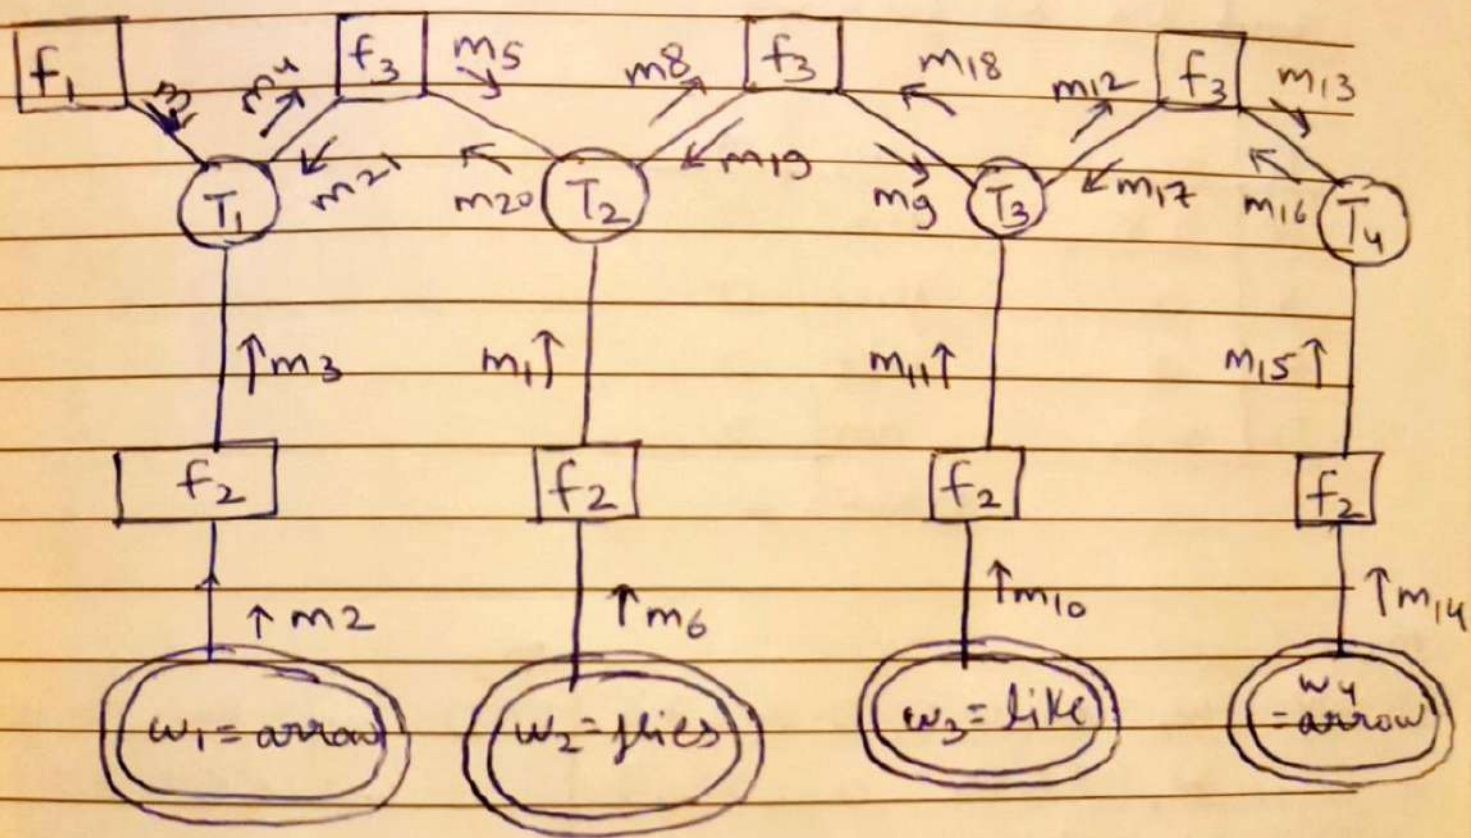 f1 f3 m5 m8 f3 m18 m12 f3 m13
m4
T1 m21 m20 T2 m19 m9 T3 m17 m16 T4
↑m3 m1↑ m11↑ m15↑
f2 f2 f2 f2
↑m2 ↑m6 ↑m10 ↑m14
w1=arrow w2=flies w3=like w4
=arrow